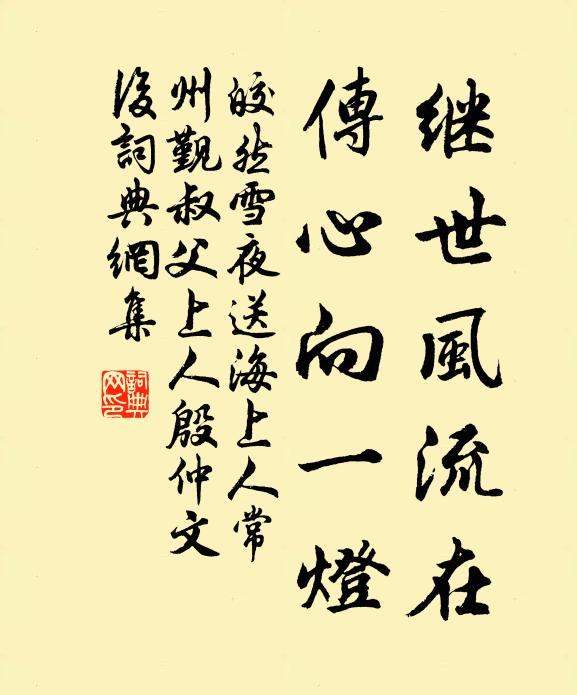 继世風流在
傳心向一燈
皎然雪夜送海上人常
州覲叔父上人殷仲文
後詞典網集
詞典
网印